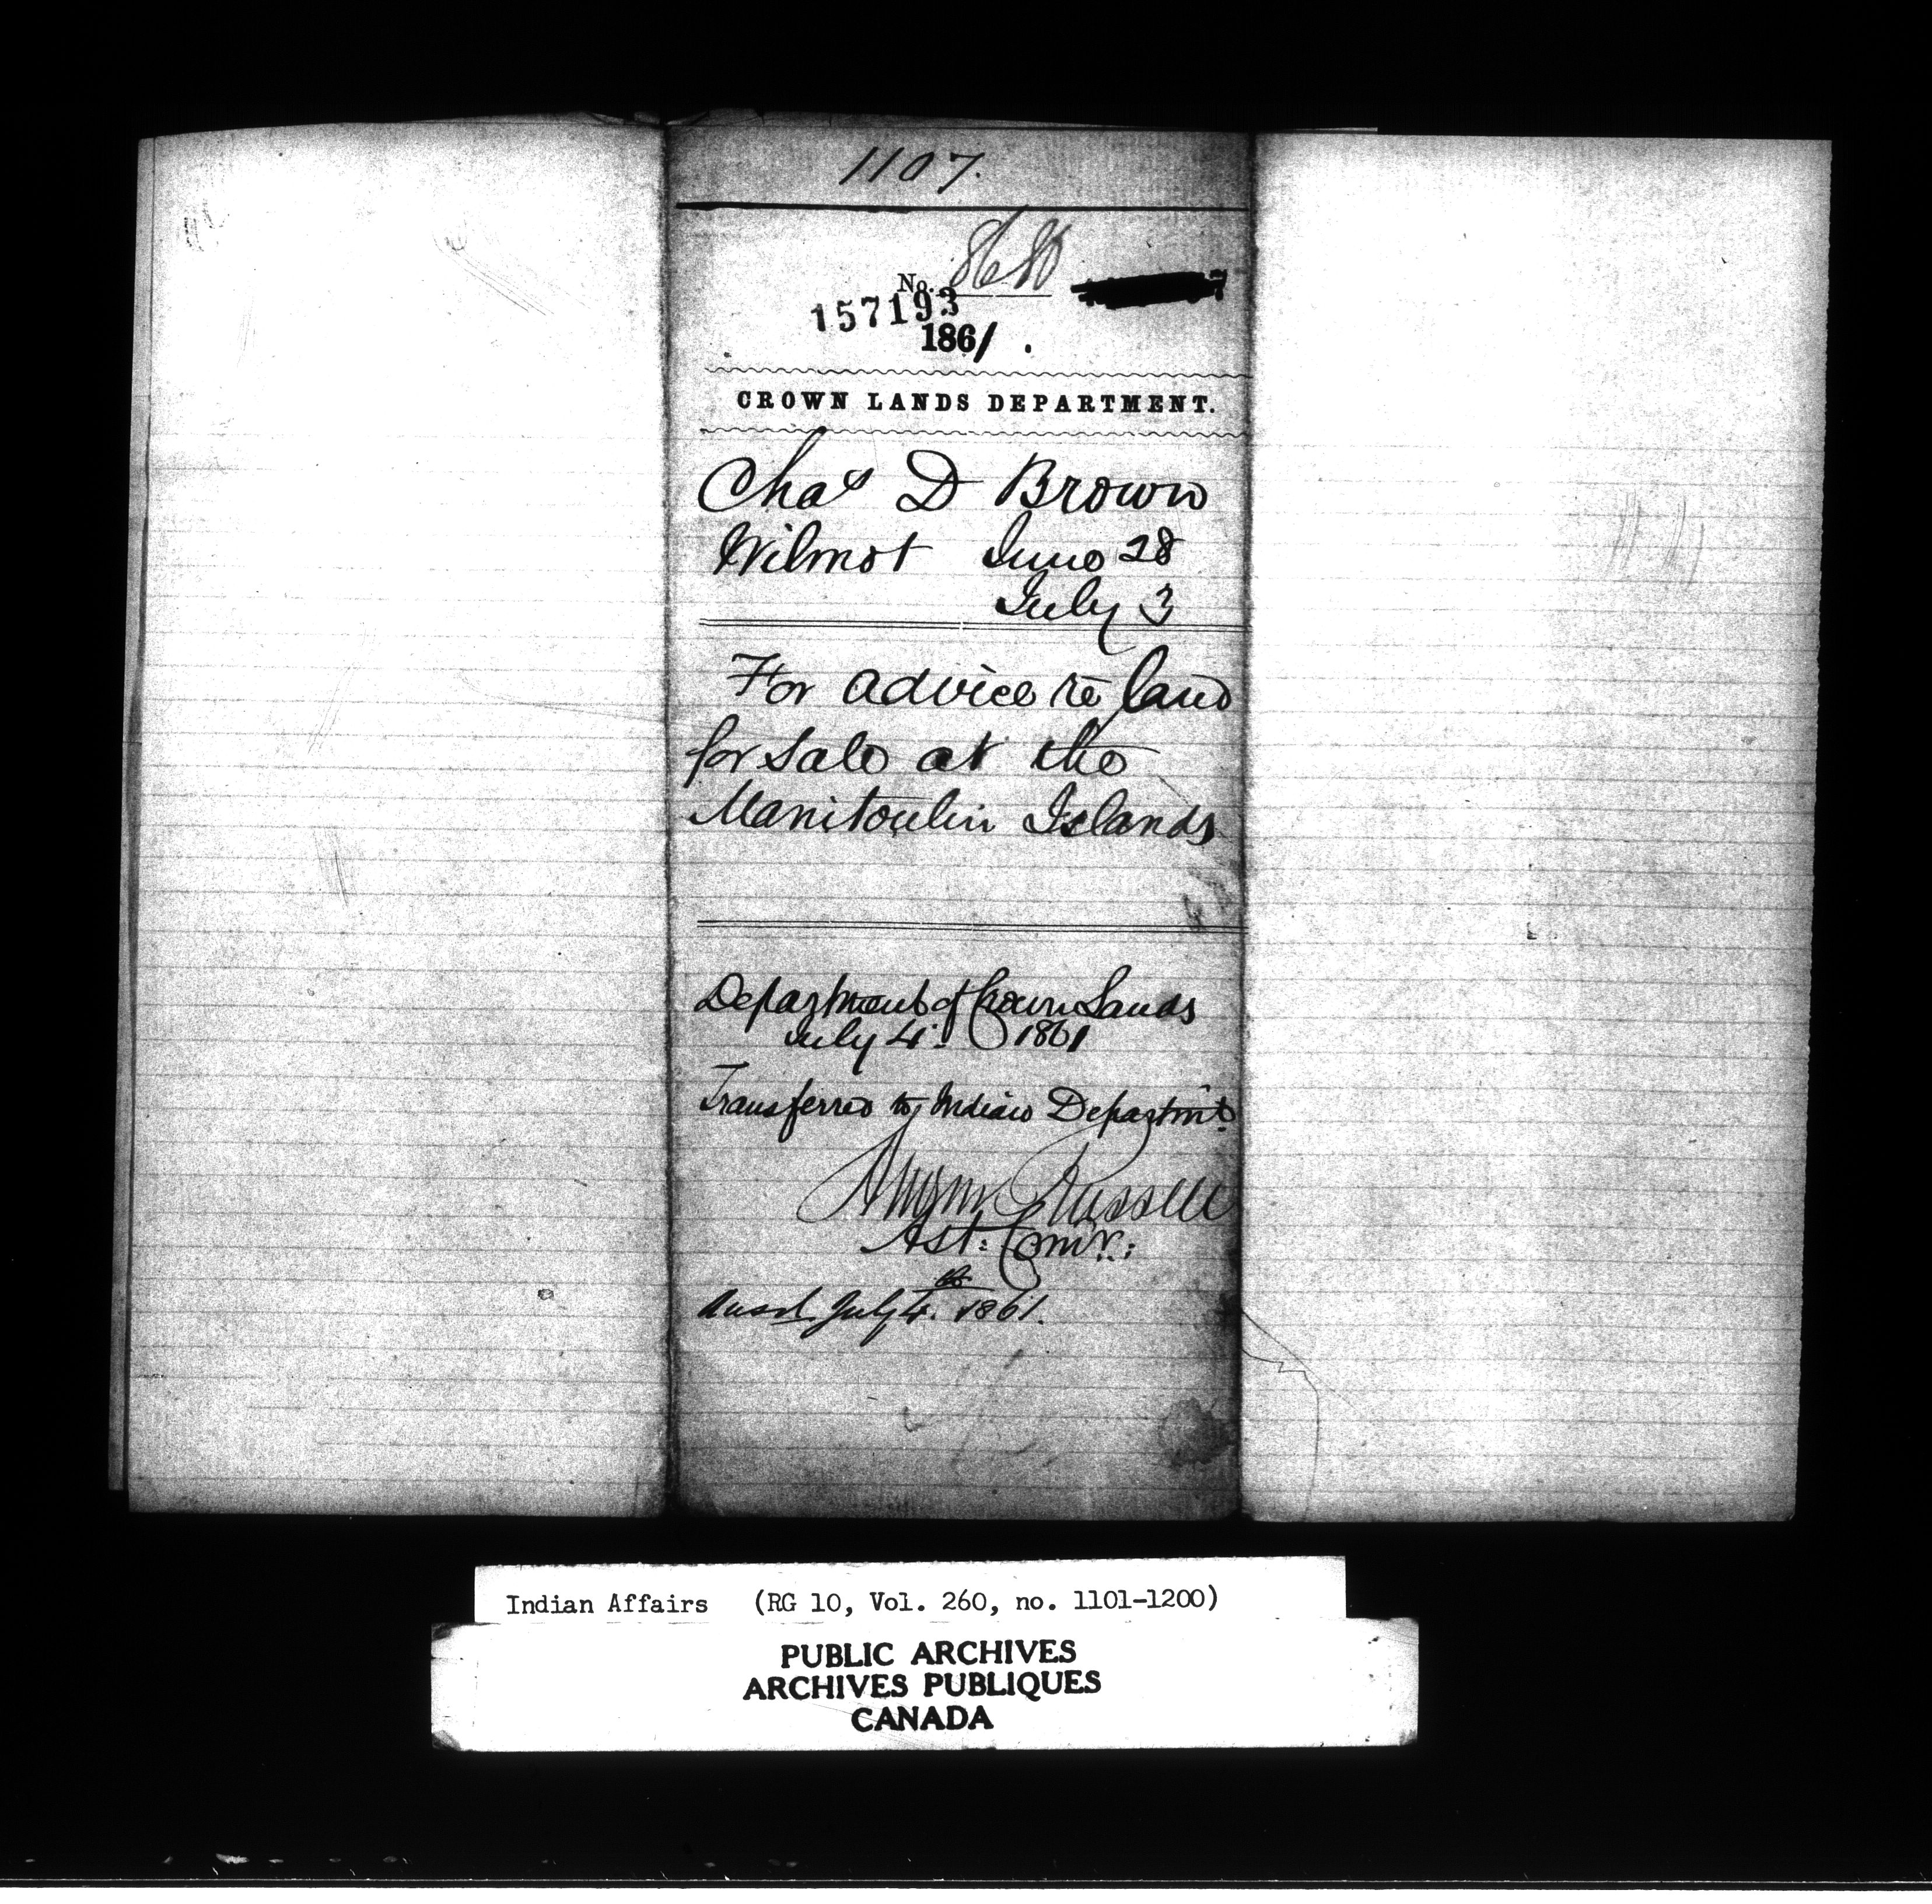 1107.
No.
157193
1861.
CROWN LANDS DEPARTMENT.
Chas D Brown
Wilmot June 28
July 3
For advice re land
for sale at the
Manitoulin Islands
Department of Crown Lands
July 4. 1861
Transferred to Indian Departmt.
Russell
Asst: Comr:
Ansd. July 4th. 1861.
Indian Affairs (RG 10, Vol. 260, no. 1101-1200)
PUBLIC ARCHIVES
ARCHIVES PUBLIQUES
CANADA